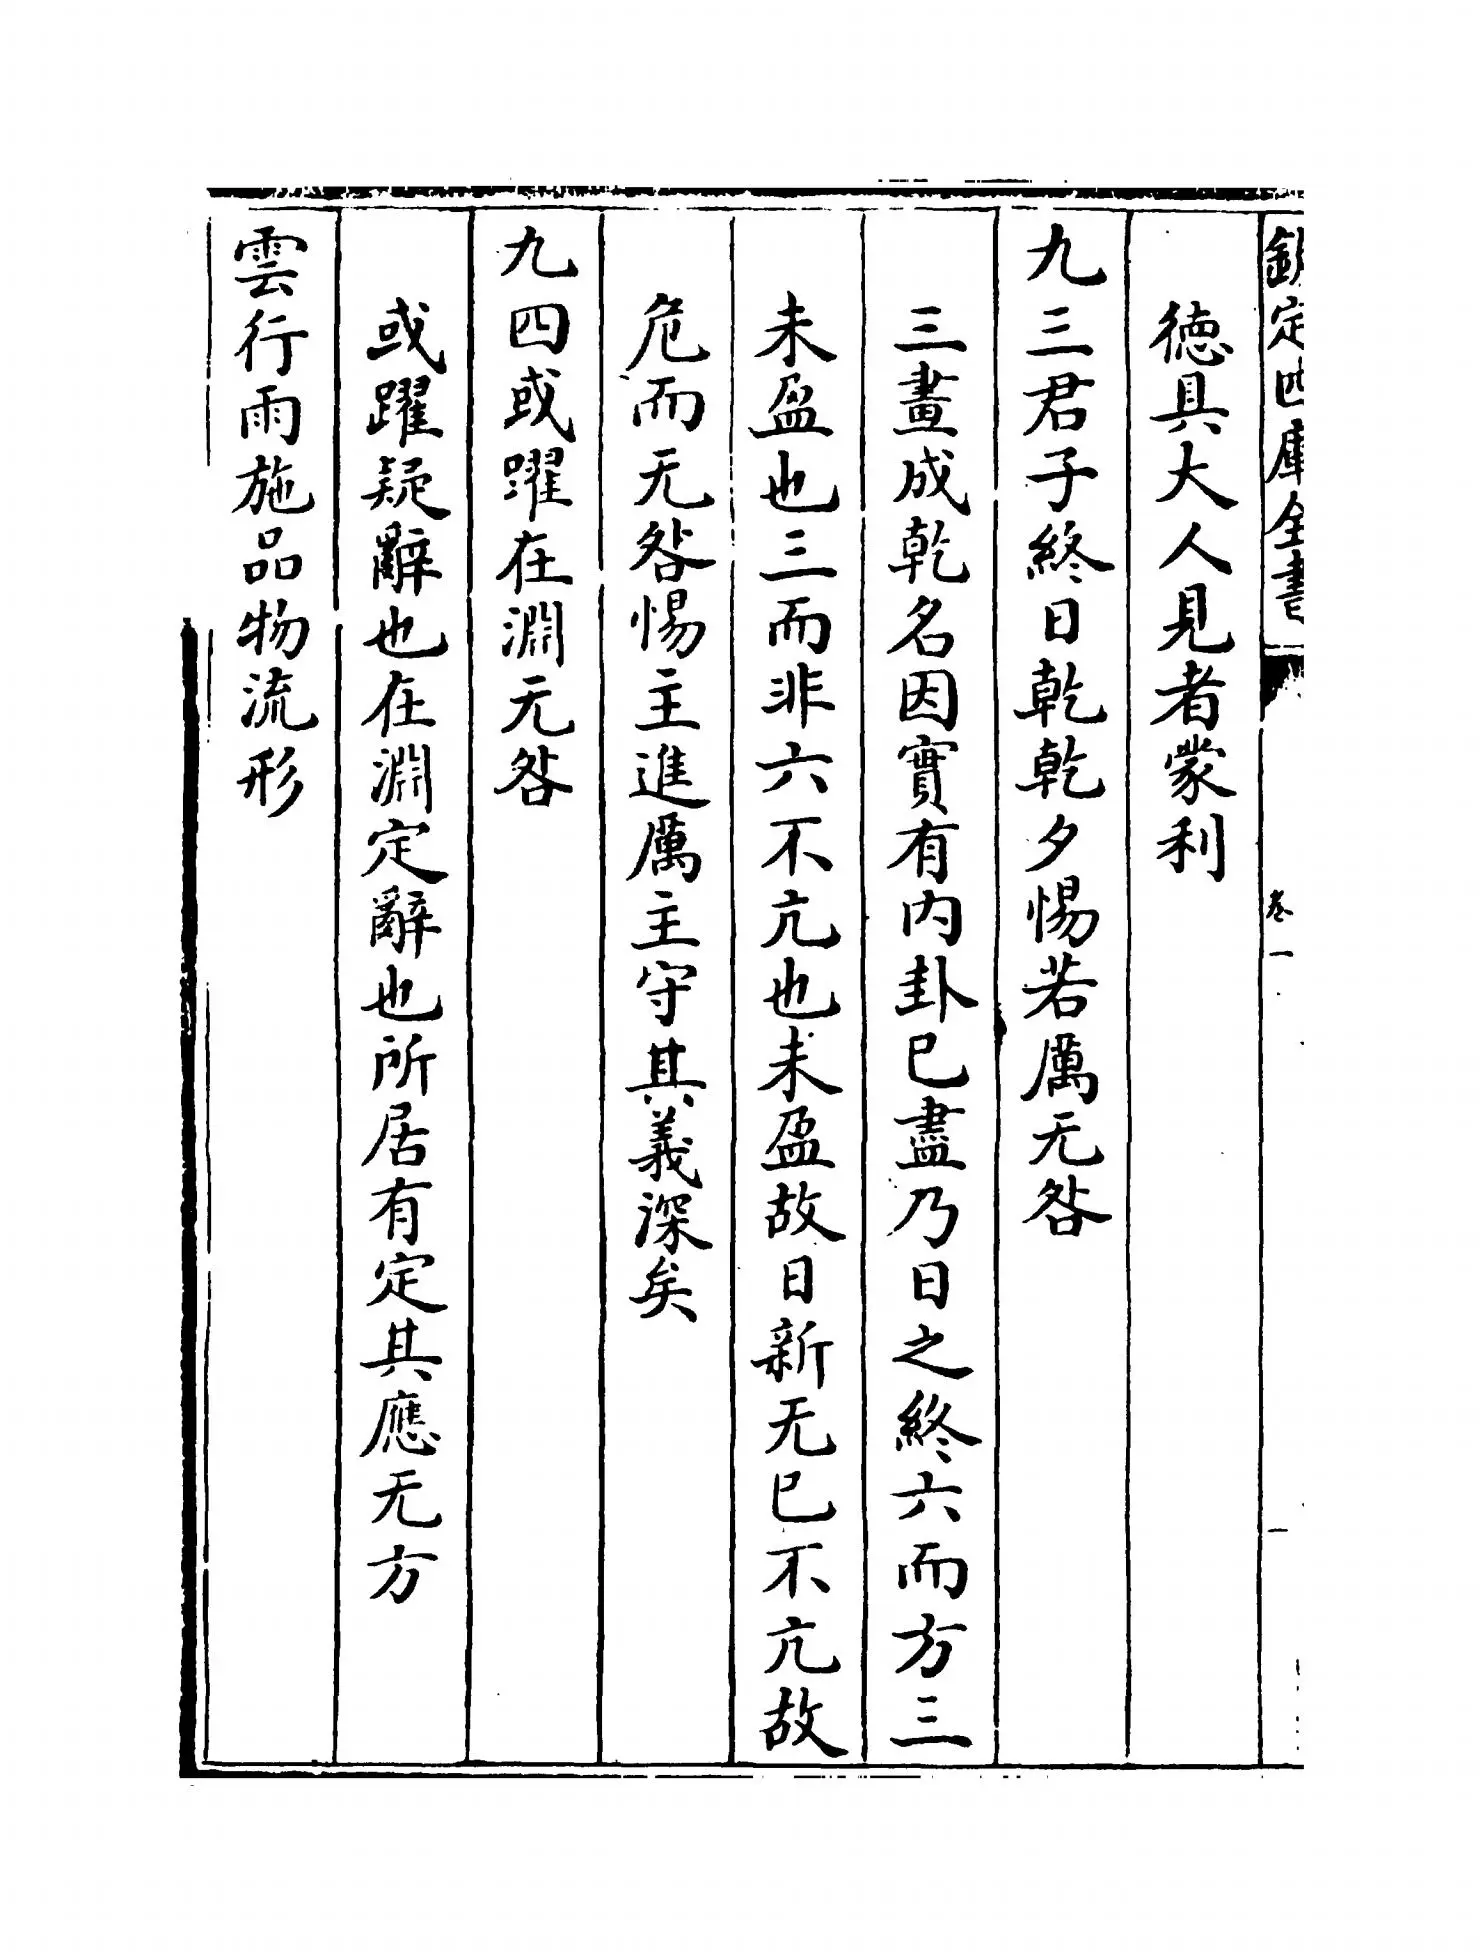 欽定四庫全書
卷一
一
德具大人見者蒙利
九三君子終日乾乾夕惕若厲无咎
三畫成乾名因實有内卦已盡乃日之終六而方三
未盈也三而非六不亢也未盈故日新无已不亢故
危而无咎惕主進厲主守其義深矣
九四或躍在淵无咎
或躍疑辭也在淵定辭也所居有定其應无方
雲行雨施品物流形